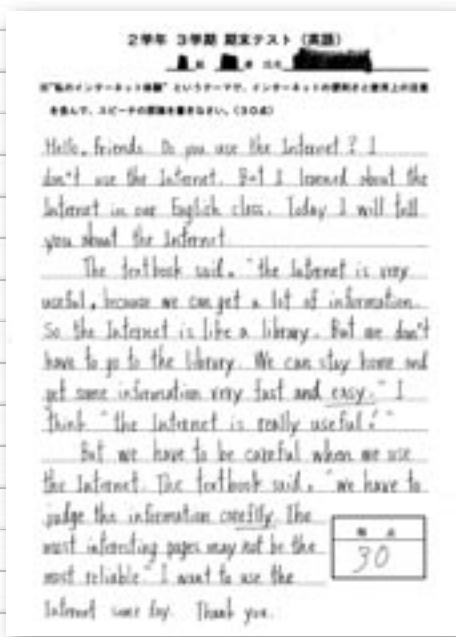 2学年 3学期 期末テスト (英語)
組 番 氏名
※"私のインターネット体験" というテーマで、インターネットの便利さと使用上の注意
を含んで、スピーチの原稿を書きなさい。(30点)
Hello, friends. Do you use the Internet? I
don't use the Internet. But I learned about the
Internet in our English class. Today I will tell
you about the Internet.
The textbook said, "the Internet is very
useful, because we can get a lot of information.
So the Internet is like a library. But we don't
have to go to the library. We can stay home and
get some information very fast and easy." I
think "the Internet is really useful!"
But we have to be careful when we use
the Internet. The textbook said, "we have to
judge the information carefily. The
most interesting pages may not be the
most reliable." I want to use the
Internet some day. Thank you.
得 点
30